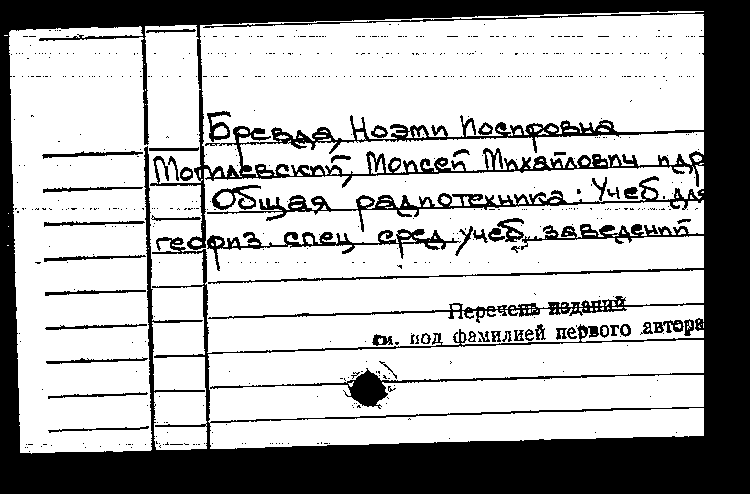 Бревда, Ноэми Иосифовна
Могилевский, Моисей Михайлович и др
Общая радиотехника: Учеб. для
геофиз. спец. сред. учеб. заведений
Перечень изданий
см. под фамилией первого автора